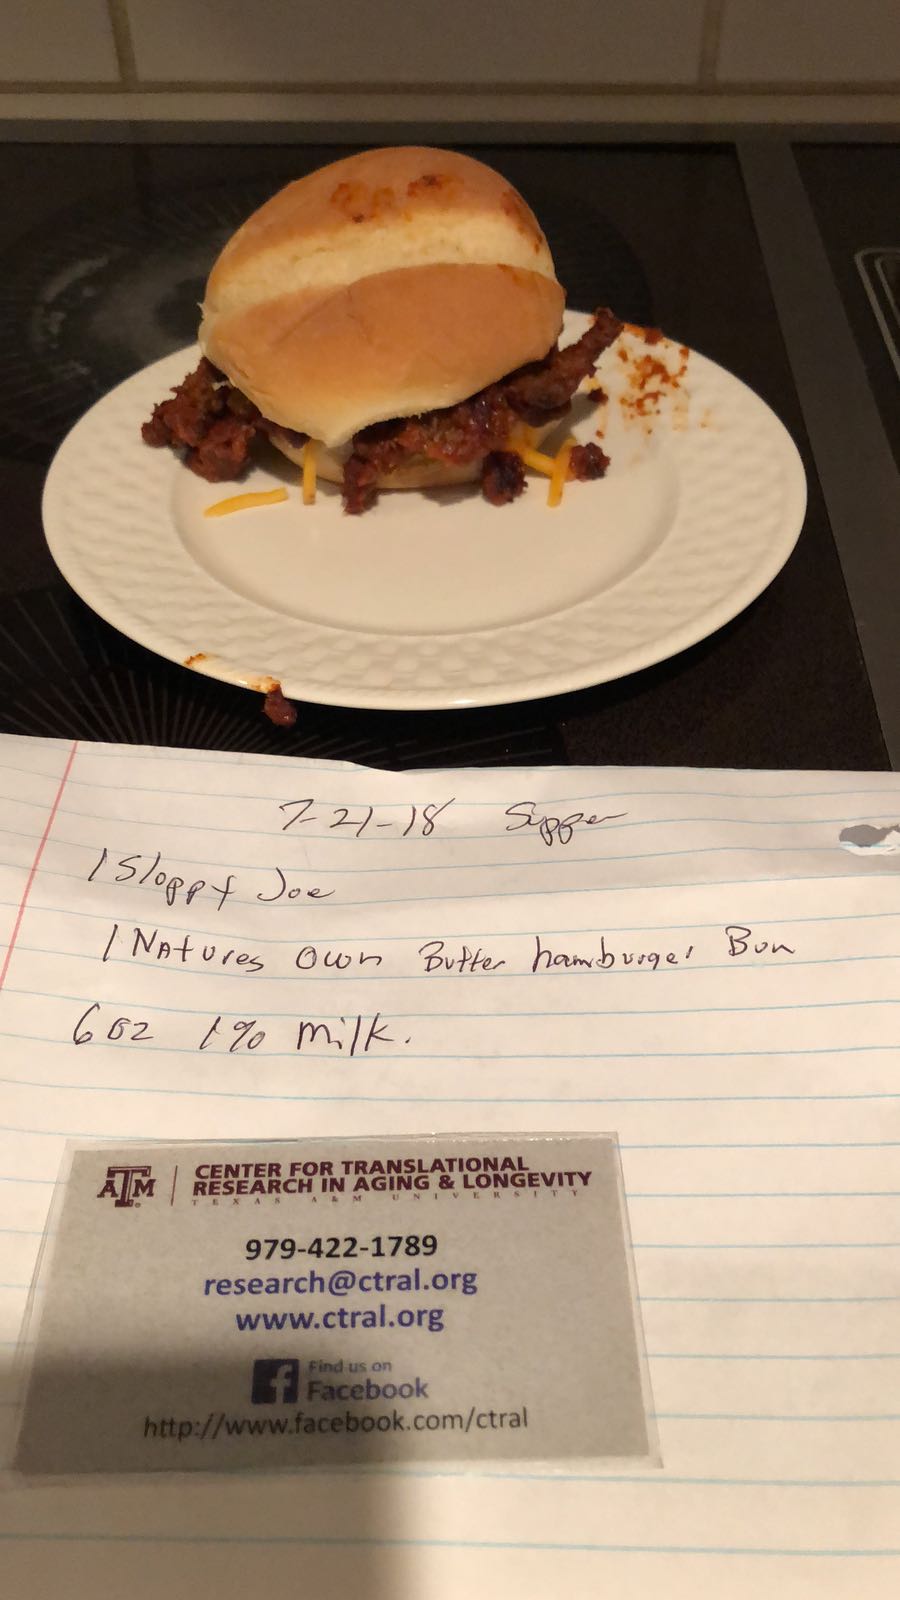 7-21-18 Supper
1 Sloppy Joe
1 Natures Own Butter hamburger Bun
6 oz 1% milk.
ATM CENTER FOR TRANSLATIONAL
RESEARCH IN AGING & LONGEVITY
TEXAS A&M UNIVERSITY
979-422-1789
research@ctral.org
www.ctral.org
f Find us on
Facebook
http://www.facebook.com/ctral